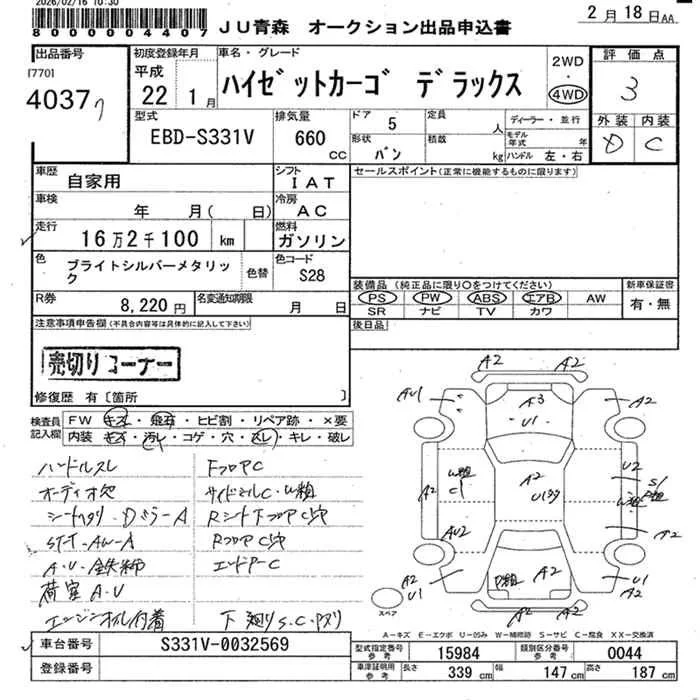 2026/02/16 10:30
8000004407
JU青森 オークション出品申込書
2月18日AA
出品番号
[770]
4037
初度登録年月
平成
22 1月
車名・グレード
ハイゼットカーゴ デラックス
2WD
・
4WD
評価点
3
外装 内装
D C
型式
EBD-S331V
排気量
660
CC
ドア
5
形状
バン
定員
人
積載
kg
ディーラー・並行
モデル年式
年
ハンドル 左・右
車歴
自家用
シフト
IAT
セールスポイント(正常に機能するものに限ります)
車検
年 月( 日)
冷房
AC
走行
16万2千100 km
燃料
ガソリン
色
ブライトシルバーメタリック
色替
色コード
S28
装備品 (純正品に限り○をつけてください)
PS PW ABS エアB AW
SR ナビ TV カワ
新車保証書
有・無
R券
8,220円
名変通知期限
月 日
後日品
注意事項申告欄(不具合内容等は具体的に記入して下さい)
売切りコーナー
修復歴 有[箇所 ]
検査員
記入欄
FW キズ・飛石・ヒビ割・リペア跡・×要
内装 キズ・汚レ・コゲ・穴・スレ・キレ・破レ
ハンドルスレ
オーディオ欠
A.U
荷室A.U
エンジンオイル付着
FフロアC
サイドミルC
RフロアC
エンドアーC
下廻りS.C.
A2 A2
AU1 A3 A2
U1
W粗
C1
A2
A2
U2
AU2
A2
A2
U1
A2
U1
A2
A2 A2
スペア
A-キズ E-エクボ U-凹み W-補修跡 S-サビ C-腐食 XX-交換済
車台番号
S331V-0032569
登録番号
型式指定番号
参考
15984
類別区分番号
参考
0044
車庫証明用
参考
長さ
339 cm
幅
147 cm
高さ
187 cm